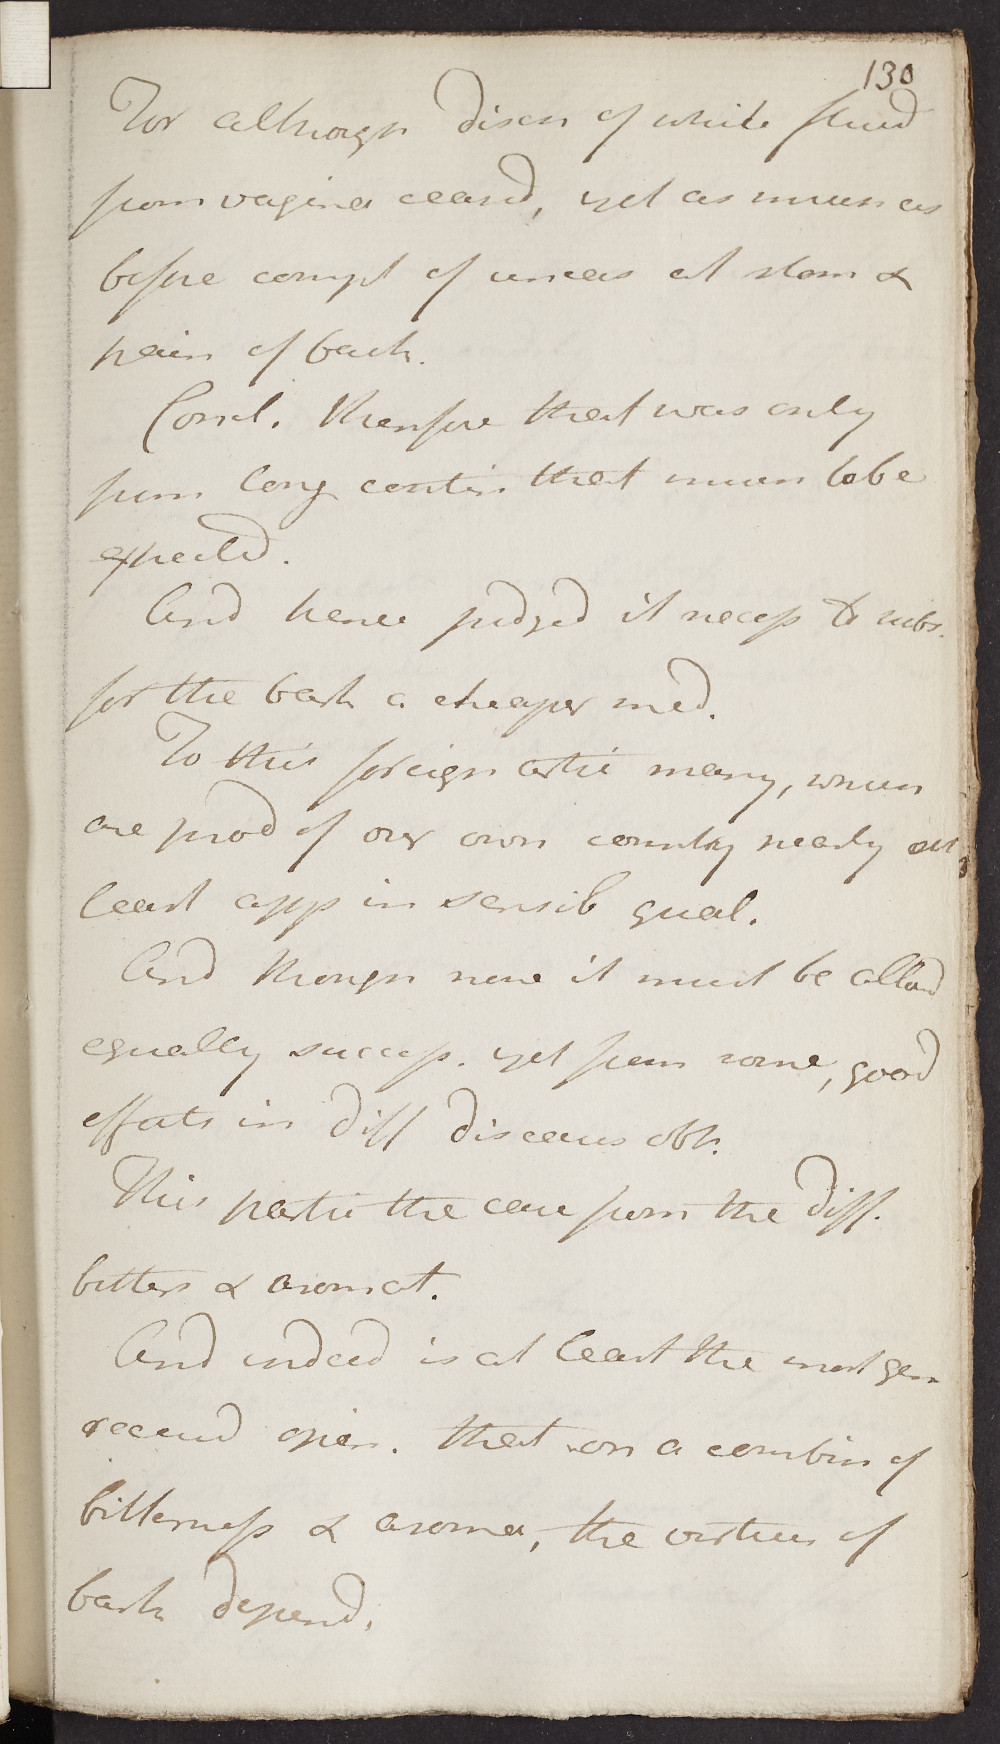 130
For although disch of white fluid
from vagina ceased, yet as much as
before compl of uneas at stom &
pain of back.
Concl. therefore that was only
from long contin that much to be
expected.
And hence judged it necess to subs.
for the bark a cheaper med.
To this foreign artic many, which
are prod of our own country nearly at
least app in sensib qual.
And though none it must be allowd
equally success. yet from some, good
effects in diff diseases obs.
This partic the case from the diff.
bitters & aromat.
And indeed is at least the most gen
receivd opin. that on a combin of
bitterness & aroma, the virtues of
bark depend.